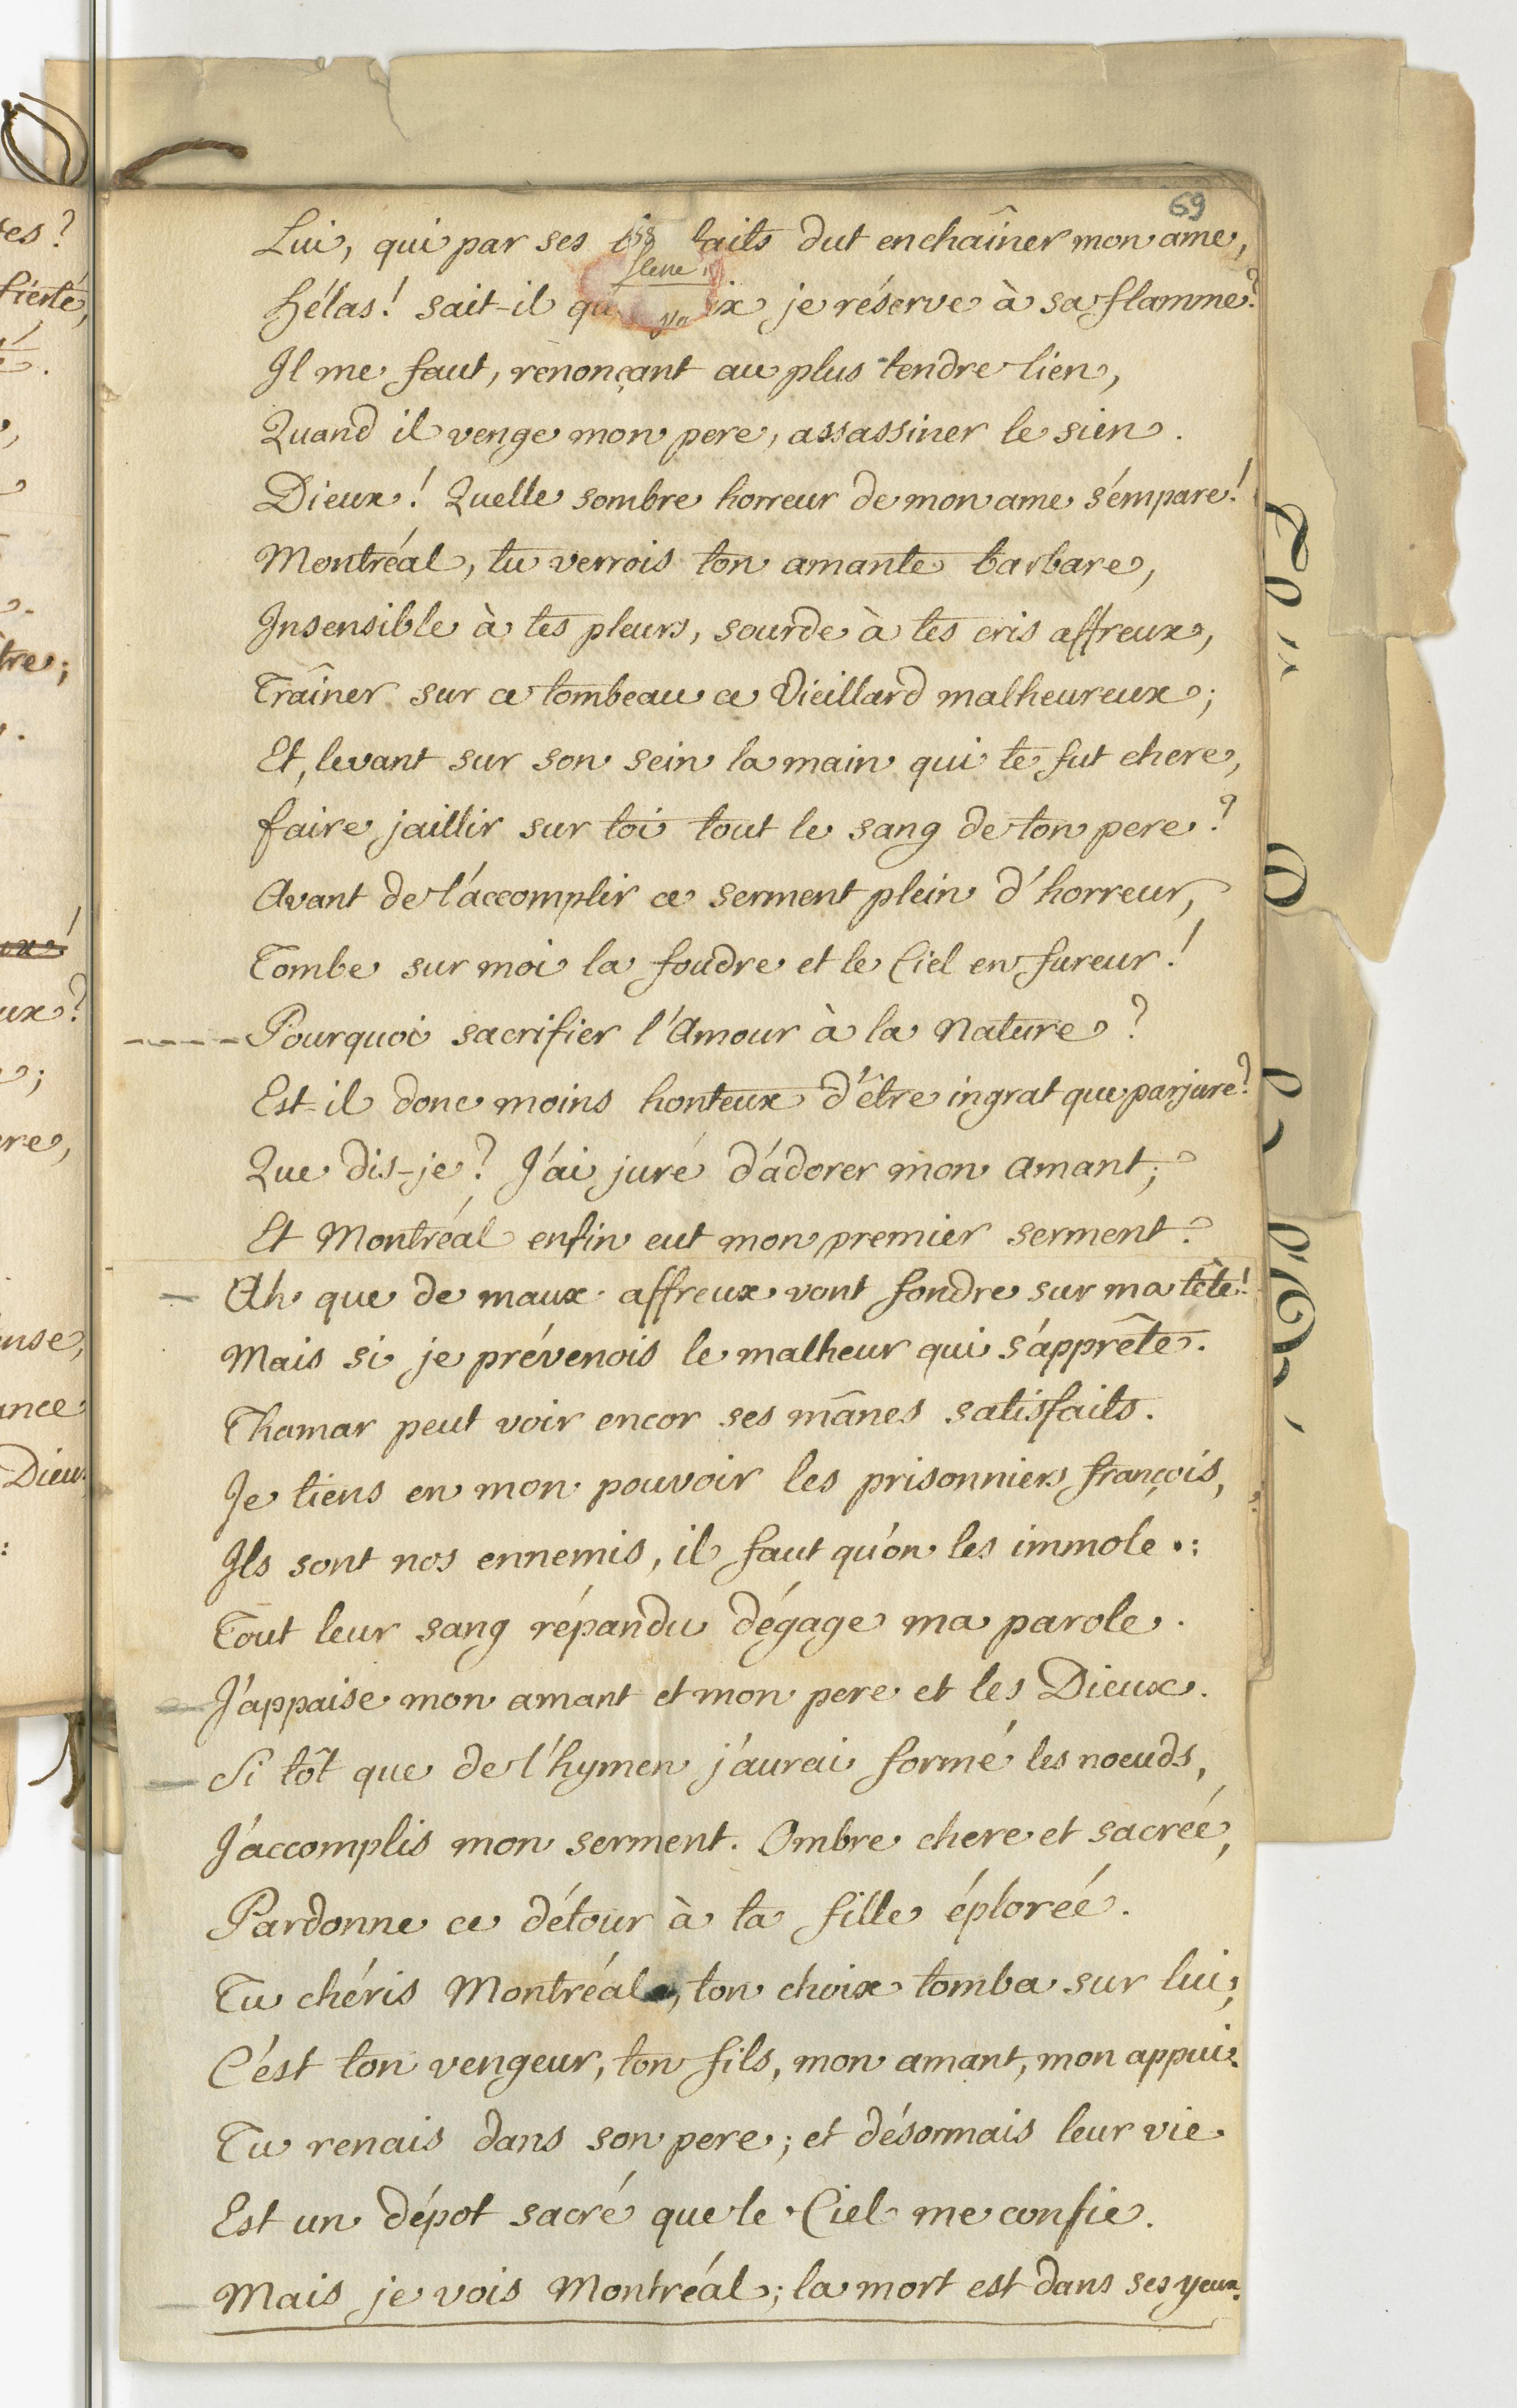 69
Lui, qui par ses faits dut enchaîner mon ame,
hélas! sait-il je réserve à sa flamme?
Il me faut, renonçant au plus tendre lien,
Quand il venge mon pere, assassiner le sien.
Dieux! Quelle sombre horreur de mon ame s'émpare!
Montréal, tu verrois ton amante barbare,
Insensible à tes pleurs, sourde à tes cris affreux,
Traîner sur ce tombeau ce Vieillard malheureux;
Et, levant sur son sein la main qui te fut chere,
faire jaillir sur toi tout le sang de ton pere?
Avant de l'áccomplir ce serment plein d'horreur,
Tombe sur moi la foudre et le Ciel en fureur!
Pourquoi sacrifier l'Amour à la Nature?
Est-il donc moins honteux d'être ingrat que parjure?
Que dis-je? J'ái juré d'ádorer mon amant;
Et Montréal enfin eut mon premier serment.
Ah que de maux affreux vont fondre sur ma tête!
Mais si je prévenois le malheur qui s'ápprête.
Thamar peut voir encor ses mânes satisfaits.
Je tiens en mon pouvoir les prisonniers françois,
Ils sont nos ennemis, il faut qu'ón les immole.:
Tout leur sang répandu dégage ma parole.
J'appaise mon amant et mon pere et les Dieux.
Si tôt que de l'hymen j'aurai formé les noeuds,
J'accomplis mon serment. Ombre chere et sacréé,
Pardonne ce détour à ta fille éploréé.
Tu chéris Montréal, ton choix tomba sur lui;
C'ést ton vengeur, ton fils, mon amant, mon appui.
Tu renais dans son pere; et désormais leur vie
Est un dépot sacré que le Ciel me confie.
Mais je vois Montréal; la mort est dans ses yeux.